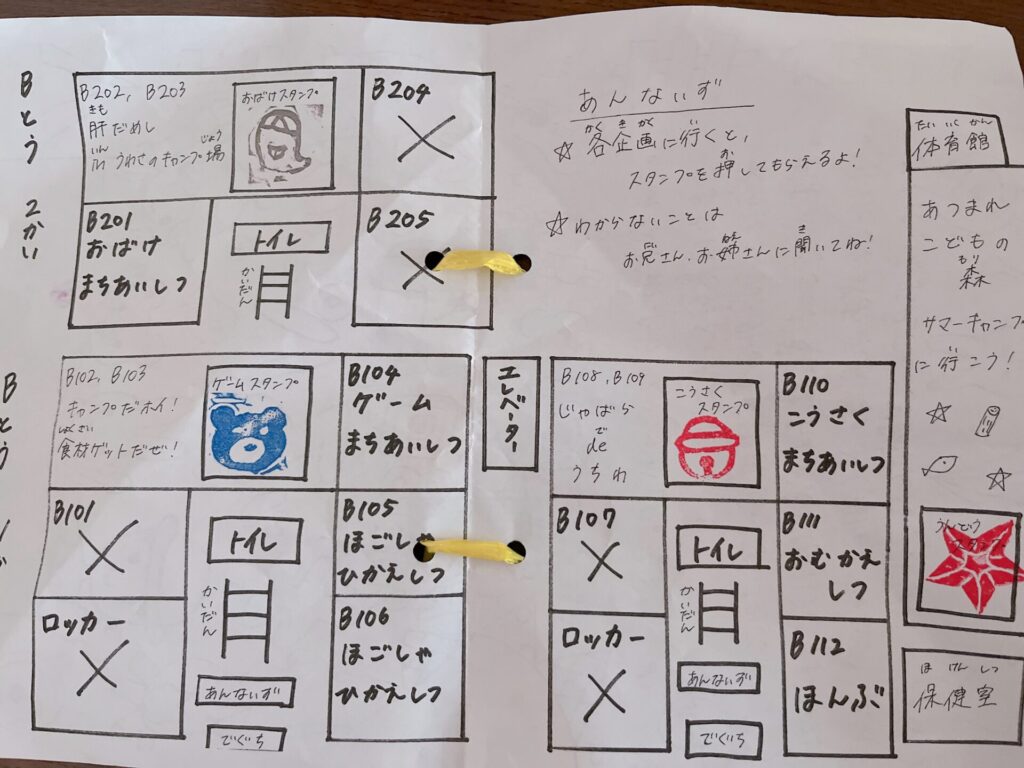 Bとう 2かい
B202, B203
きも
肝だめし
いん じょう
in うわさのキャンプ場
おばけスタンプ
B204
B201
おばけ
まちあいしつ
トイレ
かいだん
B205
あんないず
かく きかく
☆ 各企画に行くと、
お
スタンプを押してもらえるよ!
☆ わからないことは
お兄さん、お姉さんに聞いてね!
たいいくかん
体育館
あつまれ
こどもの
もり
森
サマーキャンプ
に行こう!
うんどう
スタンプ
ほけんしつ
保健室
Bとう
B102, B103
キャンプだホイ!
しょくざい
食材ゲットだぜ!
ゲームスタンプ
B104
ゲーム
まちあいしつ
B101
トイレ
かいだん
B105
ほごしゃ
ひかえしつ
ロッカー
B106
ほごしゃ
ひかえしつ
あんないず
でぐち
エレベーター
B108, B109
じゃばら
で
de
うちわ
こうさく
スタンプ
B110
こうさく
まちあいしつ
B107
トイレ
かいだん
B111
おむかえ
しつ
ロッカー
B112
ほんぶ
あんないず
でぐち